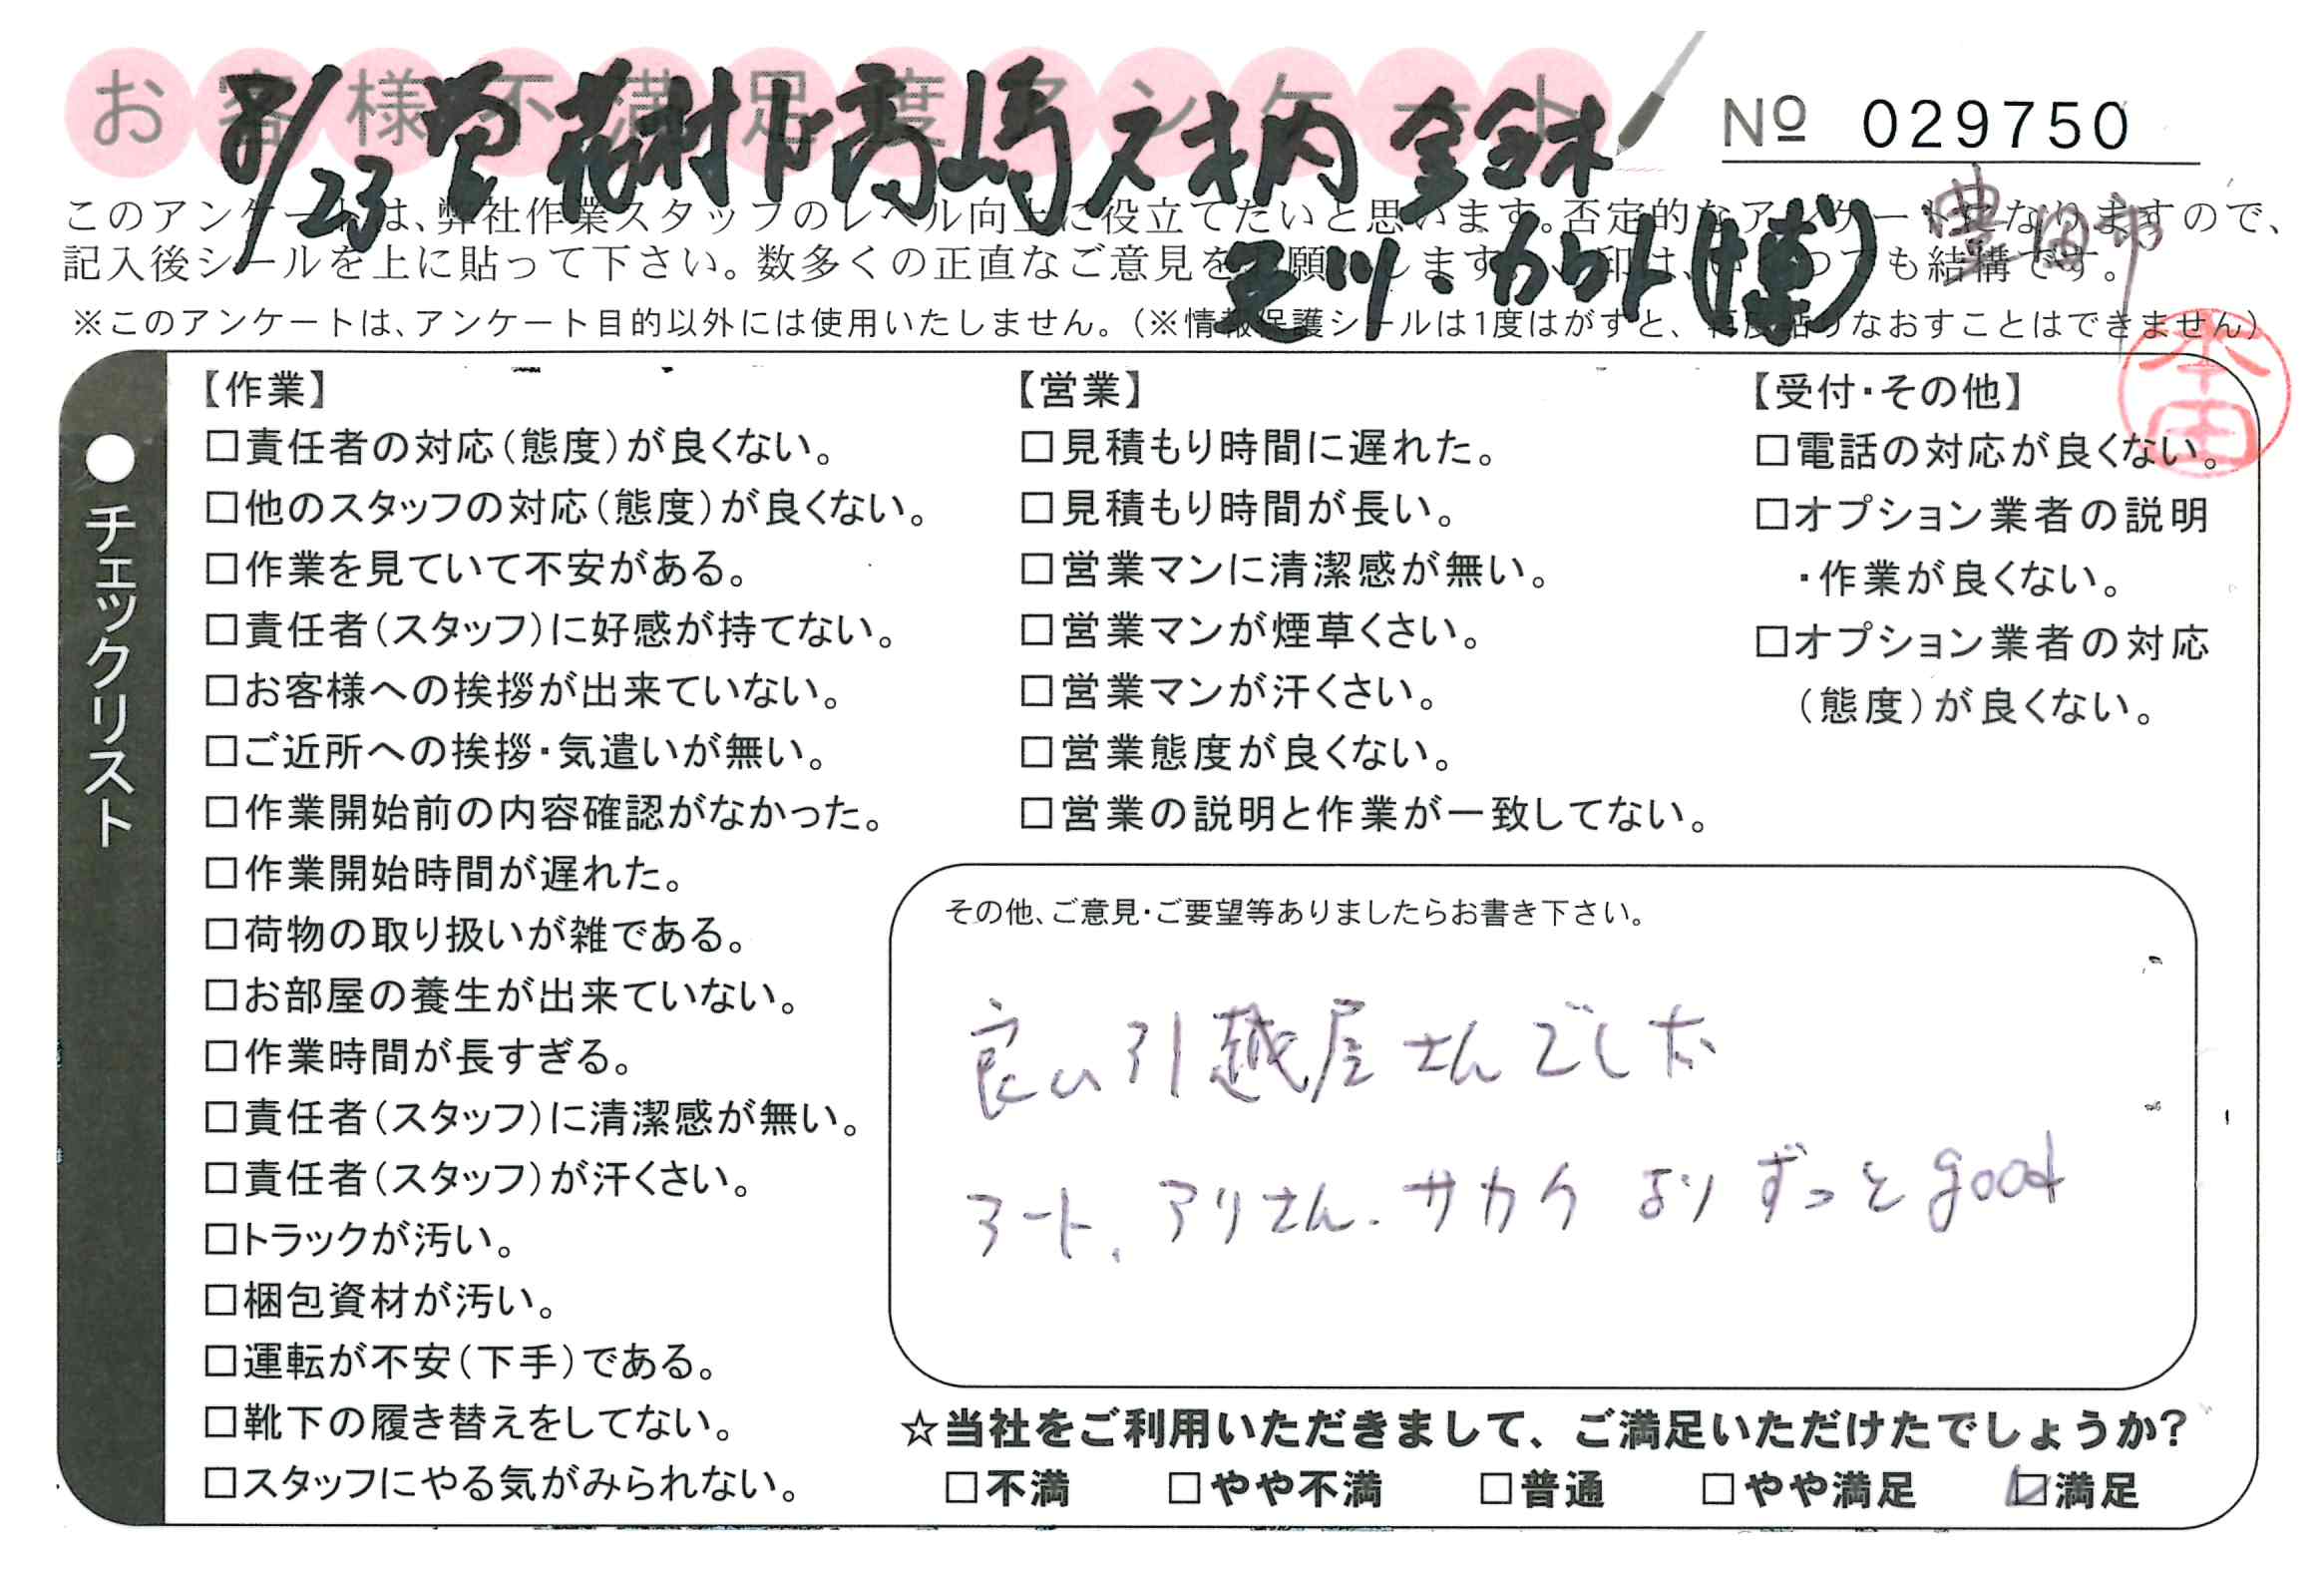 お客様不満足度アンケート
№ 029750
8/23 曽 花村 ド高嶋 ス柄 金 鈴木
足川・カクト(博)
豊田市
このアンケートは、弊社作業スタッフのレベル向上に役立てたいと思います。否定的なアンケートになりますので、
記入後シールを上に貼って下さい。数多くの正直なご意見をお願いします。✓印は、いくつでも結構です。
※このアンケートは、アンケート目的以外には使用いたしません。(※情報保護シールは1度はがすと、再度貼りなおすことはできません)
本田
●チェックリスト
【作業】
□責任者の対応(態度)が良くない。
□他のスタッフの対応(態度)が良くない。
□作業を見ていて不安がある。
□責任者(スタッフ)に好感が持てない。
□お客様への挨拶が出来ていない。
□ご近所への挨拶・気遣いが無い。
□作業開始前の内容確認がなかった。
□作業開始時間が遅れた。
□荷物の取り扱いが雑である。
□お部屋の養生が出来ていない。
□作業時間が長すぎる。
□責任者(スタッフ)に清潔感が無い。
□責任者(スタッフ)が汗くさい。
□トラックが汚い。
□梱包資材が汚い。
□運転が不安(下手)である。
□靴下の履き替えをしてない。
□スタッフにやる気がみられない。
【営業】
□見積もり時間に遅れた。
□見積もり時間が長い。
□営業マンに清潔感が無い。
□営業マンが煙草くさい。
□営業マンが汗くさい。
□営業態度が良くない。
□営業の説明と作業が一致してない。
【受付・その他】
□電話の対応が良くない。
□オプション業者の説明
・作業が良くない。
□オプション業者の対応
(態度)が良くない。
その他、ご意見・ご要望等ありましたらお書き下さい。
良い引越屋さんでした
アート、アリさん、サカイよりずっとgood
☆当社をご利用いただきまして、ご満足いただけたでしょうか?
□不満 □やや不満 □普通 □やや満足 ☑満足